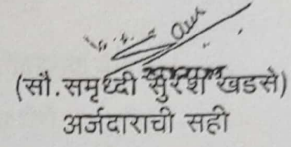 (सौ.समृध्दी सुरेश खडसे)
अर्जदाराची सही